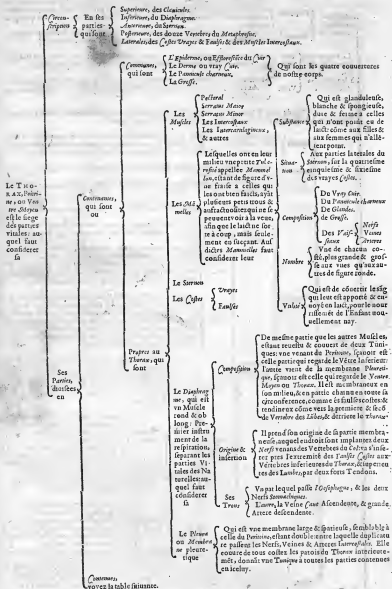 Le THO-
RAX, Poitri-
ne, ou Ven-
tre Moyen
est le siege
des parties
vitales: au-
quel faut
considerer
sa
Circon-
scription
En ses
parties
qui sont
Superieure, des Clavicules.
Inferieure, du Diaphragme.
Anterieure, du Sternon.
Posterieure, des douze Vertebres du Metaphrene,
Laterales, des Costes Vrayes & Faulses & des Muscles Intercostaux.
Ses
Parties,
diuisees
en
Contenantes,
qui sont
ou
Communes,
qui sont
L'Epiderme, ou Efflorescence du Cuir
Le Derme ou vray Cuir.
Le Pannicule charneux,
La Gresse.
Qui sont les quatre couuertures
de nostre corps.
Propres au
Thorax, qui
sont
Les
Muscles
Pectoral
Serratus Maior
Serratus Minor
Les Intercostaux
Les Intercartilagineux,
& autres
Les Ma-
melles
Lesquelles ont en leur
milieu vne petite Tube-
rosité appellee Mammel-
lon, estant de figure d'v-
ne fraise a celles qui
les ont bien faicts, ayāt
plusieurs petis trous &
anfractuositez qui ne se
peuuent voir à la veue,
afin que le laict ne sor-
te à coup, mais seule-
ment en sucçant. Aus
dictes Mammelles faut
considerer leur
Substance
Qui est glanduleuse,
blanche & spongieuse,
dure & ferme a celles
qui n'ont point eu de
laict: cōme aux filles &
aux femmes qui n'alle-
ctent point.
Situa-
tion
Aux parties laterales du
Sternon, sur la quatriesme
cinquiesme & sixiesme
des vrayes Costes.
Composition
Du Vray Cuir.
Du Pannicule charneux
De Glandes.
de Gresse.
Des Vais-
seaux
Nerfs
Veines
Arteres
Nombre
Vne de chacun co-
sté, plus grande & gros-
se aux vnes qu'aux au-
tres de figure ronde.
Vtilité
Qui est de cōuertir le sāg
qui leur est apporté & en-
uoyé en laict, pour le nour-
rissemēt de l'Enfant nou-
uellement nay.
Le Sternon
Les Costes
Vrayes
Faulses
Le Diaphrag-
me, qui est
vn Muscle
rond & ob
long: Pre-
mier instru
ment de la
respiration,
separant les
parties Vi-
tales des Na
turelles: au-
quel faut
considerer
sa
Composition
De mesme partie que les autres Muscles,
estant reuestu & couuert de deux Tuni-
ques: vne venant du Peritoine, sçauoir est
celle partie qui regarde le Vētre Inferieur:
l'autre vient de la membrane Pleureti-
que, sçauoir est celle qui regarde le Ventre
Moyen ou Thorax. Il est membraneux en
son milieu, & en partie charnu en toute sa
circonference, comme és faulses costes: &
tendineux cōme vers la premiere & secō
de Vertebre des Lūbes, & derriere le Thorax.
Origine &
insertion
Il prend son origine de sa partie membra-
neuse, auquel endroit sont implantez deux
Nerfs venans des Vertebres du Col: va s'inse-
rer pres l'extremité des Faulses Costes aux
Vertebres inferieures du Thorax, & superieu
res des Lumbes, par deux forts Tendons.
Ses
Trous
Vn par lequel passe l'Oesophague, & les deux
Nerfs Stomachiques.
L'autre, la Veine Caue Ascendente, & grande
Artere descendente.
Le Pleura
ou Membra
ne pleure-
tique
Qui est vne membrane large & spatieuse, semblable à
celle du Peritoine, estant double: entre laquelle duplicatu
re passent les Nerfs, Veines & Arteres Intercostales. Elle
couure de tous costez les parois du Thorax interieure-
mēt, donnāt vne Tunique a toutes les parties contenues
en iceluy.
Contenues,
voyez la table suiuante.